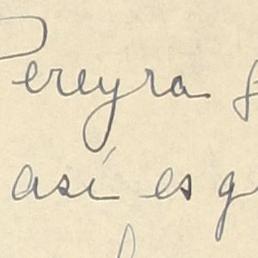 Pereyra
así es